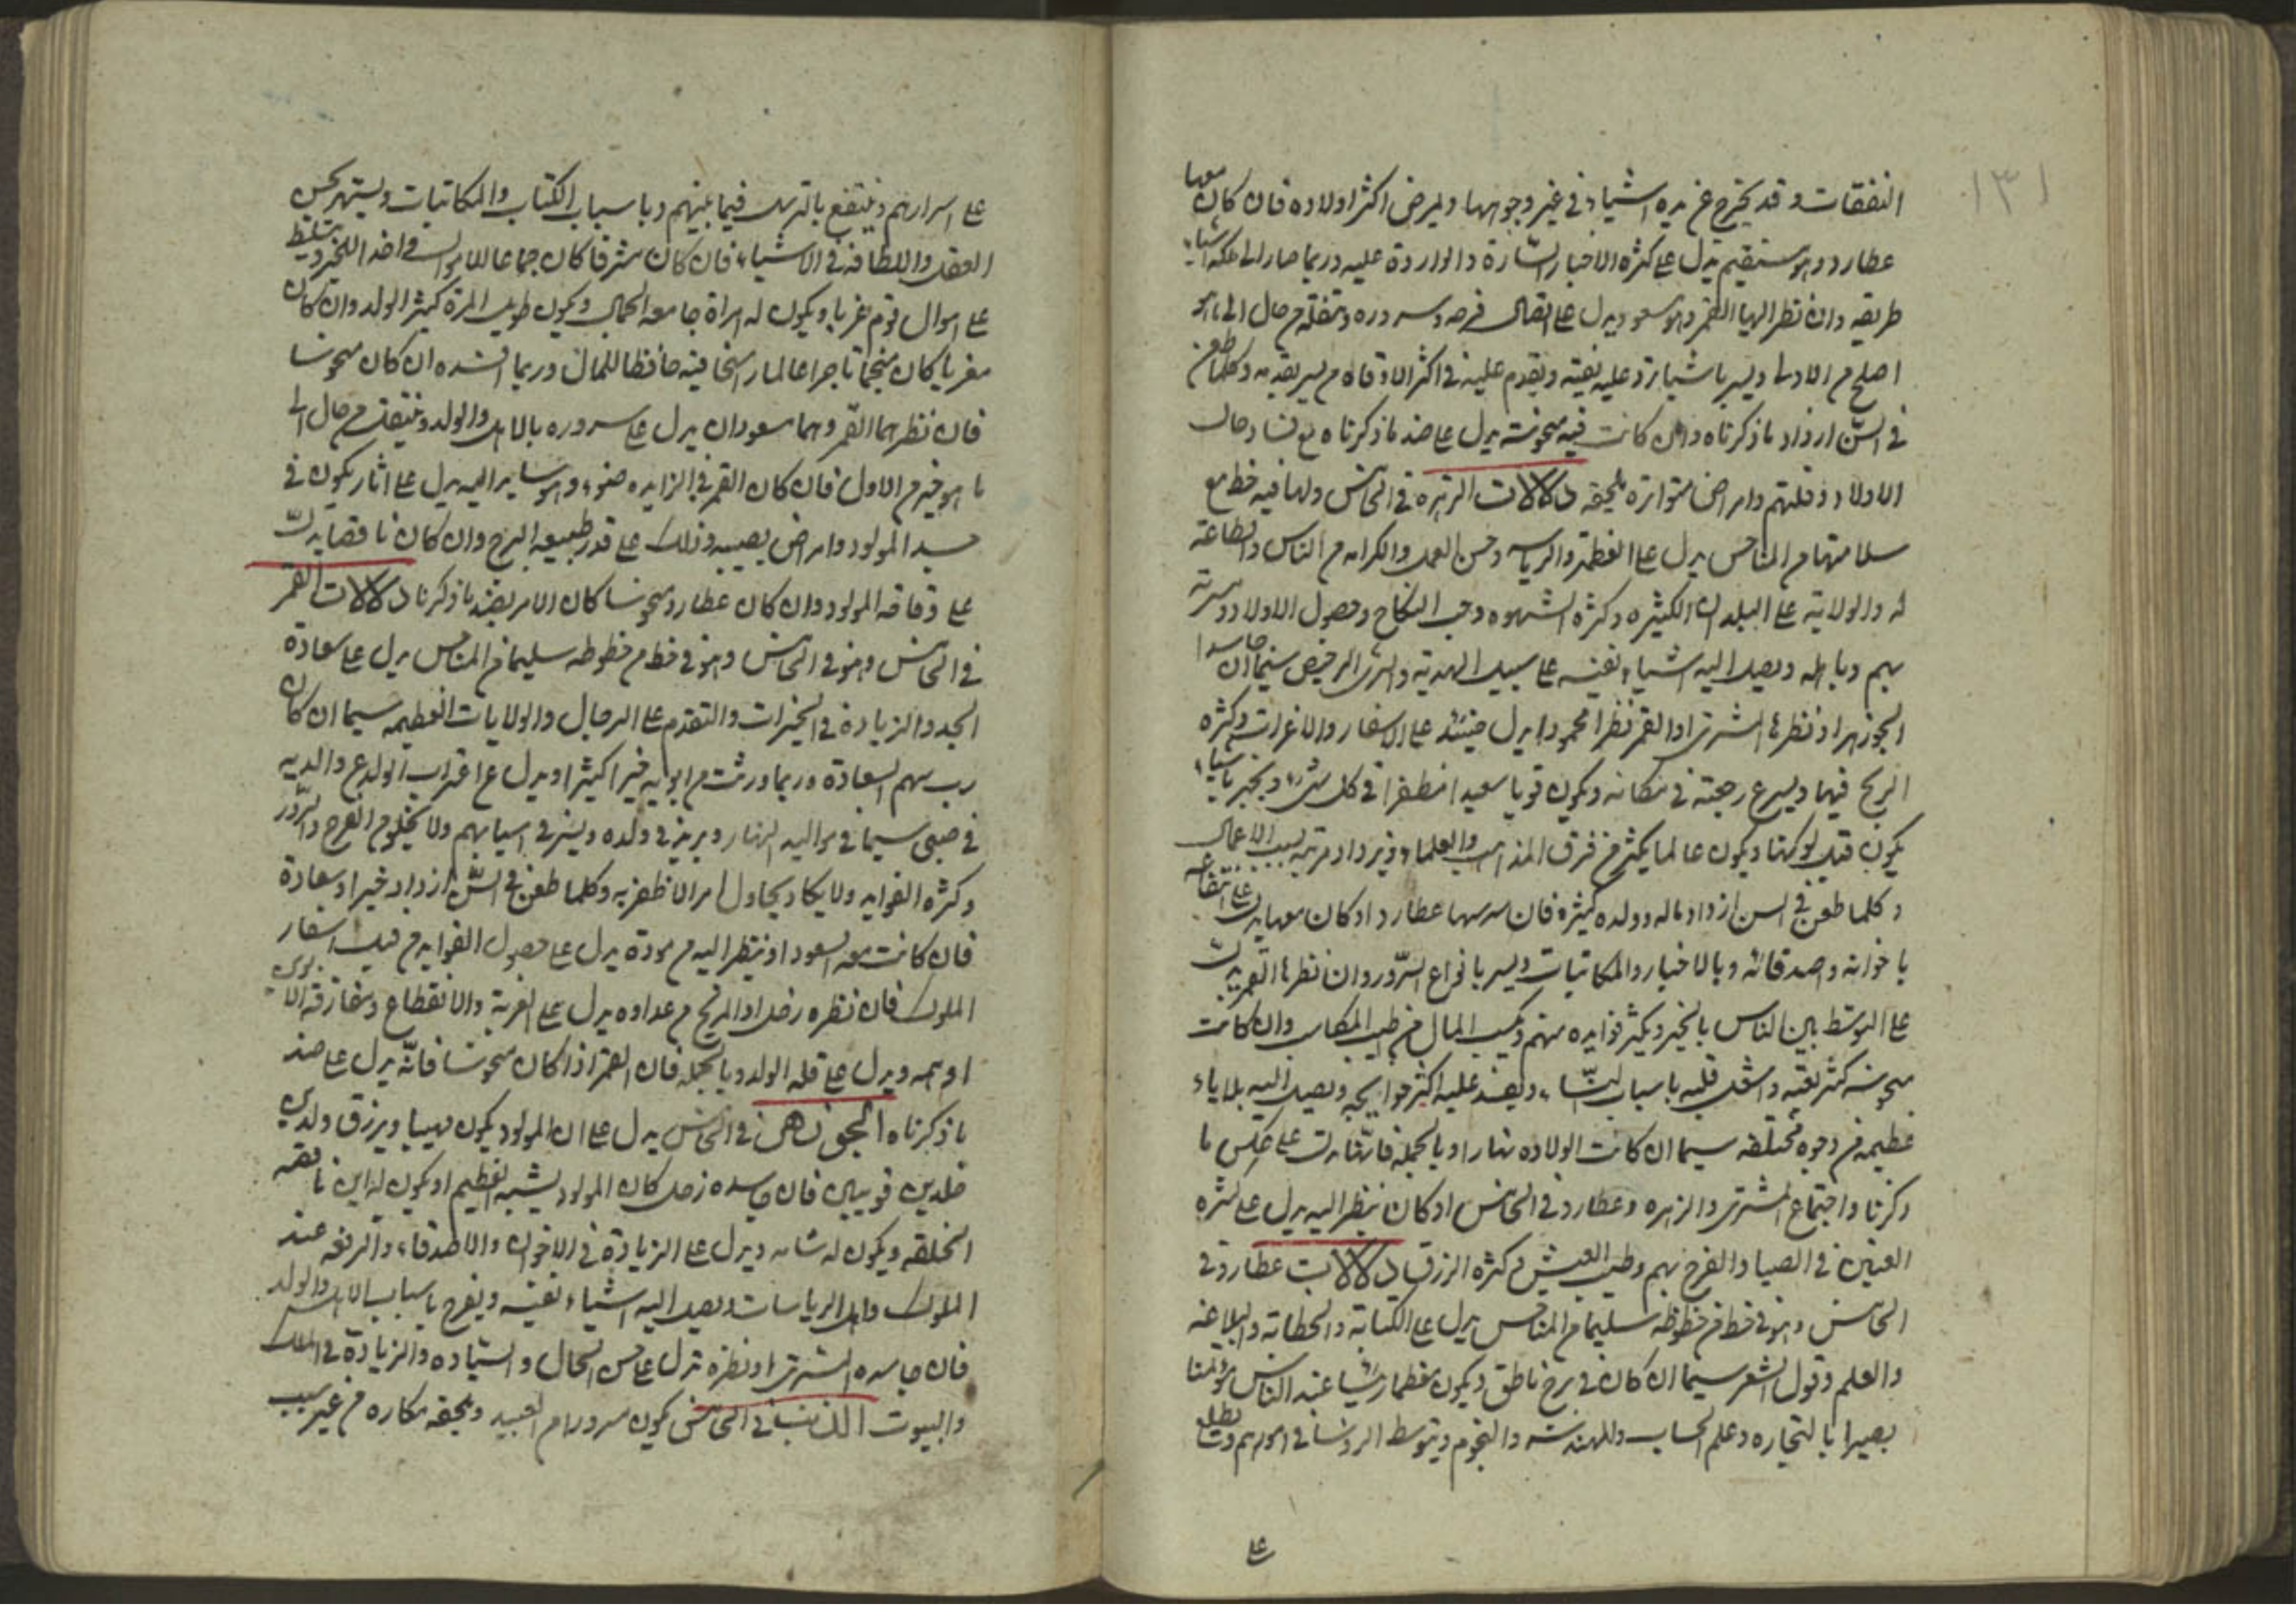 ١٣١
النفقات وقد يخرج عن يده اشياء في غير وجوهها ويمرض اكثر اولاده فان كان معها
عطارد وهو مستقيم يدل على كثرة الاخبار السارة والواردة عليه وربما صار الى ملكه اشياء
طريفه وان نظر اليها القمر وهو مسعود يدل على اتصال فرحه وسروره وتنقله من حال الى ما هو
اصلح من الاولى ويسر باشيا ترد عليه نفيسه ويقدم عليه في اكثر الاوقات من يسر بقدومه وكلما طعن
في السن ازداد ما ذكرناه وان كانت فيه منحوسة يدل على ضد ما ذكرناه مع فساد حال
الاولاد وقلتهم وامراض متواترة تلحقه دلالات الزهرة في الخامس ولها فيه حظ مع
سلامتها من المناحس يدل على العظمة والرياسه وحسن العمل والكرامه من الناس والطاعة
له والولاية على البلدان الكثيره وكثرة الشهوه وحب النكاح وحصول الاولاد ومسرته
بهم وباهله ويصل اليه اشياء نفيسه على سبيل الهدية والشرى الرخيص سيما ان جاسدها
الجوزهر او نظرها المشترى او القمر نظرا محمودا يدل حينئذ على الاسفار والاغراب وكثرة
الربح فيها ويسرع رجعته في مكانه ويكون قويا سعيدا مظفرا في كل شىء ويخبر باشياء
يكون قبل كونها ويكون عالما بكثير من فرق المذاهب والعلماء ويزداد مرتبه بسبب الاعمال
وكلما طعن في السن ازداد ماله وولده كثيرة فان مر معها عطارد او كان معها يدل على انتفاعه
باخوانه واصدقائه وبالاخبار والمكاتبات ويسر بانواع السرور وان نظرها القمر يدل
على التوسط بين الناس بالخير ويكثر فوايده منهم ويكسب المال من طيب المكاسب وان كانت
منحوسه كثر نفقته واشغل قلبه باسباب النساء ويفسد عليه اكثر حوايجه ويصل اليه بلاياء
عظيمه من وجوه مختلفه سيما ان كانت الولاده نهارا وبالجملة فانها تدل على عكس ما
ذكرنا واجتماع المشترى والزهره وعطارد في الخامس او كان ينظر اليه يدل على كثرة
البنين في الصبا والفرح بهم وطيب العيش وكثرة الرزق دلالات عطارد في
الخامس وهو في حظ من حظوظه سليما من المناحس يدل على الكتابة والخطابة والبلاغه
والعلم وقول الشعر سيما ان كان في برج ناطق ويكون معظما رئيسا عند الناس مؤتمنا
بصيرا بالتجاره وعلم الحساب والهندسه والنجوم ويتوسط الرؤسا في امورهم ويطلع
على
على اسرارهم وينتفع بالترسل فيما بينهم وباسباب الكتاب والمكاتبات ويشتهر بحسن
العقل واللطافة في الاشياء فان كان مشرقا كان جماعا للاموال في اخذ الخير ويتسلط
على اموال قوم غربا ويكون له امراة جامعه الجمال ويكون طويل المدة كثير الولد وان كان
مغربا كان منجما تاجرا عالما راسخا فيه حافظا للمال وربما افسده ان كان منحوسا
فان نظرهما القمر وهما مسعودان يدل على سروره بالاهل والولد وينتقل من حال الى
ما هو خير من الاول فان كان القمر في الزايد ضوء وهو ساير اليه يدل على اثار يكون في
جسد المولود وامراض يصيبه وذلك على قدر طبيعه البرج وان كان ناقصا يدل
على وقاقه المولود وان كان عطارد منحوسا كان الامر بضد ما ذكرنا دلالات القمر
في الخامس وهو في الخامس وهو في حظ من حظوظه سليما من المناحس يدل على سعادة
الجد والزيادة في الخيرات والتقدم على الرجال والولايات العظيمه سيما ان كان
رب سهم السعادة وربما ورث من ابويه خيرا كثيرا ويدل على اغتراب الولد عن والديه
في صبى سيما في مواليد النهار ويزيد في ولده ويسر في اسبابهم ولا يخلو من الفرح والسرور
وكثرة الفوايد ولا يكاد يحاول امرا الا ظفر به وكلما طعن في السن ازداد خيرا وسعادة
فان كانت معه السعود او ينظر اليه من مودة يدل على حصول الفوايد من قبل اسفار
الملوك فان نظره زحل او المريخ من عداوه يدل على الغربة والانقطاع ومفارقة الابوين
او امه ويدل على قلة الولد وبالجمله فان القمر اذا كان منحوسا فانه يدل على ضد
ما ذكرناه الجوزهر في الخامس يدل على ان المولود يكون مهيبا ويرزق ولدين
خلدين قويين فان جاسده زحل كان المولود بشبه العظيم او يكون له ابن ناقصه
الخلقه ويكون له شامه ويدل على الزيادة في الاخوان والاصدقاء والرفعه عند
الملوك واهل الرياسات ويصل اليه اشياء نفيسه ويفرح باسباب الاهل والولد
فان جاسده المشترى او نظره تدل على حسن الحال والسيادة والزيادة في الملك
والبيوت الذنب في الخامس يكون سرور من العبيد ويلحقه مكاره من غير سبب